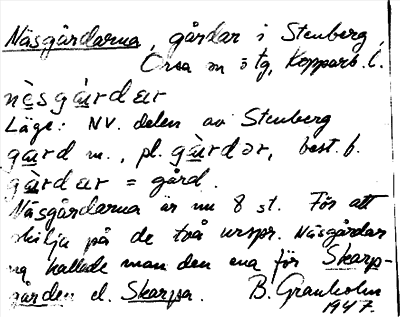 Näsgårdarna, gårdar i Stenberg,
Orsa sn ö tg, Kopparb. l.
nèsgàrdar
Läge: NV. delen av Stenberg
gard m., pl. gàrdər, best. f.
gàrdar = gård.
Näsgårdarna är nu 8 st. För att
skilja på de två urspr. Näsgårdar
na kallade man den ena för Skarp-
gården el. Skarpa. B. Granholm
1947.